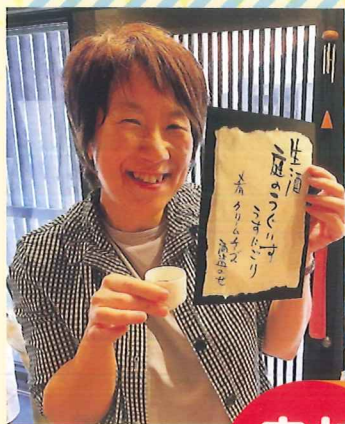 生酒
庭のうぐいす
うすにごり
肴 クリームチーズ